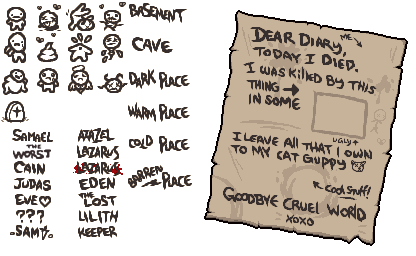 BASEMENT
CAVE
DARK PLACE
WARM PLACE
COLD PLACE
BARREN PLACE
SAMAEL
THE WORST
CAIN
JUDAS
EVE♡
???
SAM
AZAZEL
LAZARUS
LAZARUS
EDEN
THE LOST
LILITH
KEEPER
DEAR DIARY,
ME
TODAY I DIED.
I WAS KILLED BY THIS
THING →
IN SOME
UGLY↑
I LEAVE ALL THAT I OWN
TO MY CAT GUPPY
↖COOL STUFF!
GOODBYE CRUEL WORLD
XOXO